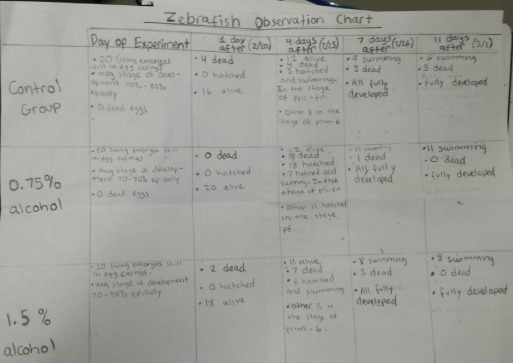 Zebrafish Observation Chart
Day of Experiment
1 day
after (2/20)
4 days
after (2/23)
7 days
after (2/26)
11 days
after (3/1)
Control
Group
• 20 living
still in egg casings
• avg stage of devel-
opment 70% - 90%
epiboly
• 0 dead eggs
• 4 dead
• 0 hatched
• 16 alive
• 12 alive
• 4 dead
hatched
and swimming
In the stage
of
• Other 8 in the
stage of prim-6
• 9 swimming
• 3 dead
• All fully
developed
• 6 swimming
• 3 dead
• fully developed
0.75%
alcohol
living still
in egg casings
• avg stage of develop-
ment 70-90% epiboly
• 0 dead eggs
• 0 dead
• 0 hatched
• 20 alive
• 12 alive
• 8 dead
• 18 hatched
• 7 hatched and
In the
stage of
• other 11 hatched
in the stage
swimming
• 1 dead
• All fully
developed
• 11 swimming
• 0 dead
• fully developed
1.5 %
alcohol
living still
in egg casings.
• avg stage of development
70-90% epiboly
• 2 dead
• 0 hatched
• 18 alive
• 11 alive
• 7 dead
• 6 hatched
and swimming
• Other 5
the stage of
prim-6.
• 8 swimming
• 3 dead
• All fully
developed
• 8 swimming
• 0 dead
• fully developed